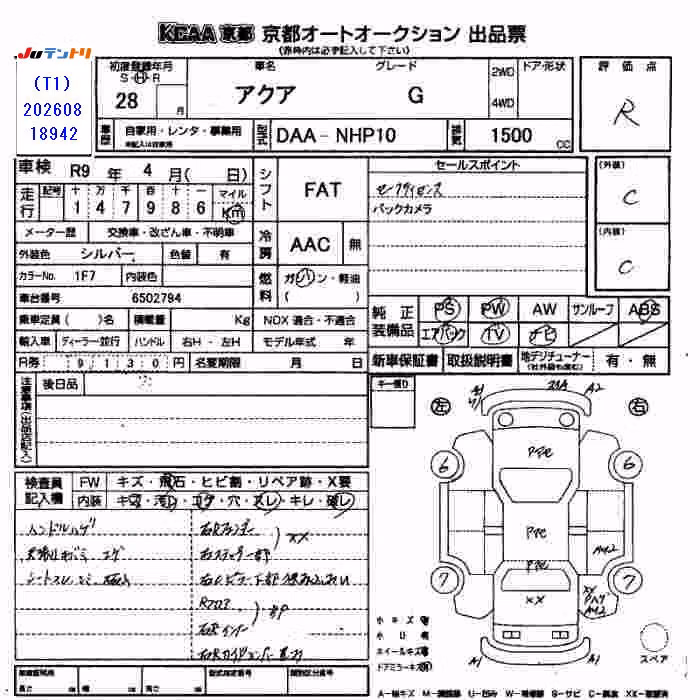 KCAA 京都 京都オートオークション 出品票
(赤枠内は必ず記入して下さい)
JUテントリ
(T1)
202608
18942
初度登録年月
S・H・R
28 年 月
車名
アクア
グレード
G
2WD
4WD
ドア・形状
評価点
R
車歴
自家用・レンタ・事業用
型式
DAA-NHP10
排気
1500 CC
車検 R9 年 4 月( 日)
走行
記号 十 万 千 百 十 一 マイル
1 4 7 9 8 6 Km
シフト
FAT
セールスポイント
セーフティセンス
バックカメラ
(外装)
C
(内装)
C
メーター歴 交換車・改ざん車・不明車
外装色 シルバー 色替 有
冷房
AAC 無
カラーNo. 1F7 内装色
燃料
ガソリン・軽油
( )
車台番号 6502794
乗車定員( )名 積載量 Kg NOX 適合・不適合
輸入車 ディーラー・並行 ハンドル 右H・左H モデル年式 年
R券 9130円 名変期限 月 日
純正装備品
PS PW AW サンルーフ ABS
エアバック TV ナビ
新車保証書 取扱説明書 地デジチューナー(社外品も含む) 有・無
注意事項(出品店記入)
後日品
キー預り
左
右
A1
23A
A2
6
6
7
7
PPe
PPe
PPe
XX
AU2
XX
検査員記入欄
FW キズ・飛石・ヒビ割・リペア跡・X要
内装 キズ・汚れ・コゲ・穴・スレ・キレ・破レ
ハンドルハゲ
シートスレ
XX
Rフロア
右Rインナー
BP
小キズ有
小凹有
ホイールキズ有
ドアミラーキズ有
スペア
長さ
幅
高さ
型式指定番号
類別区分番号